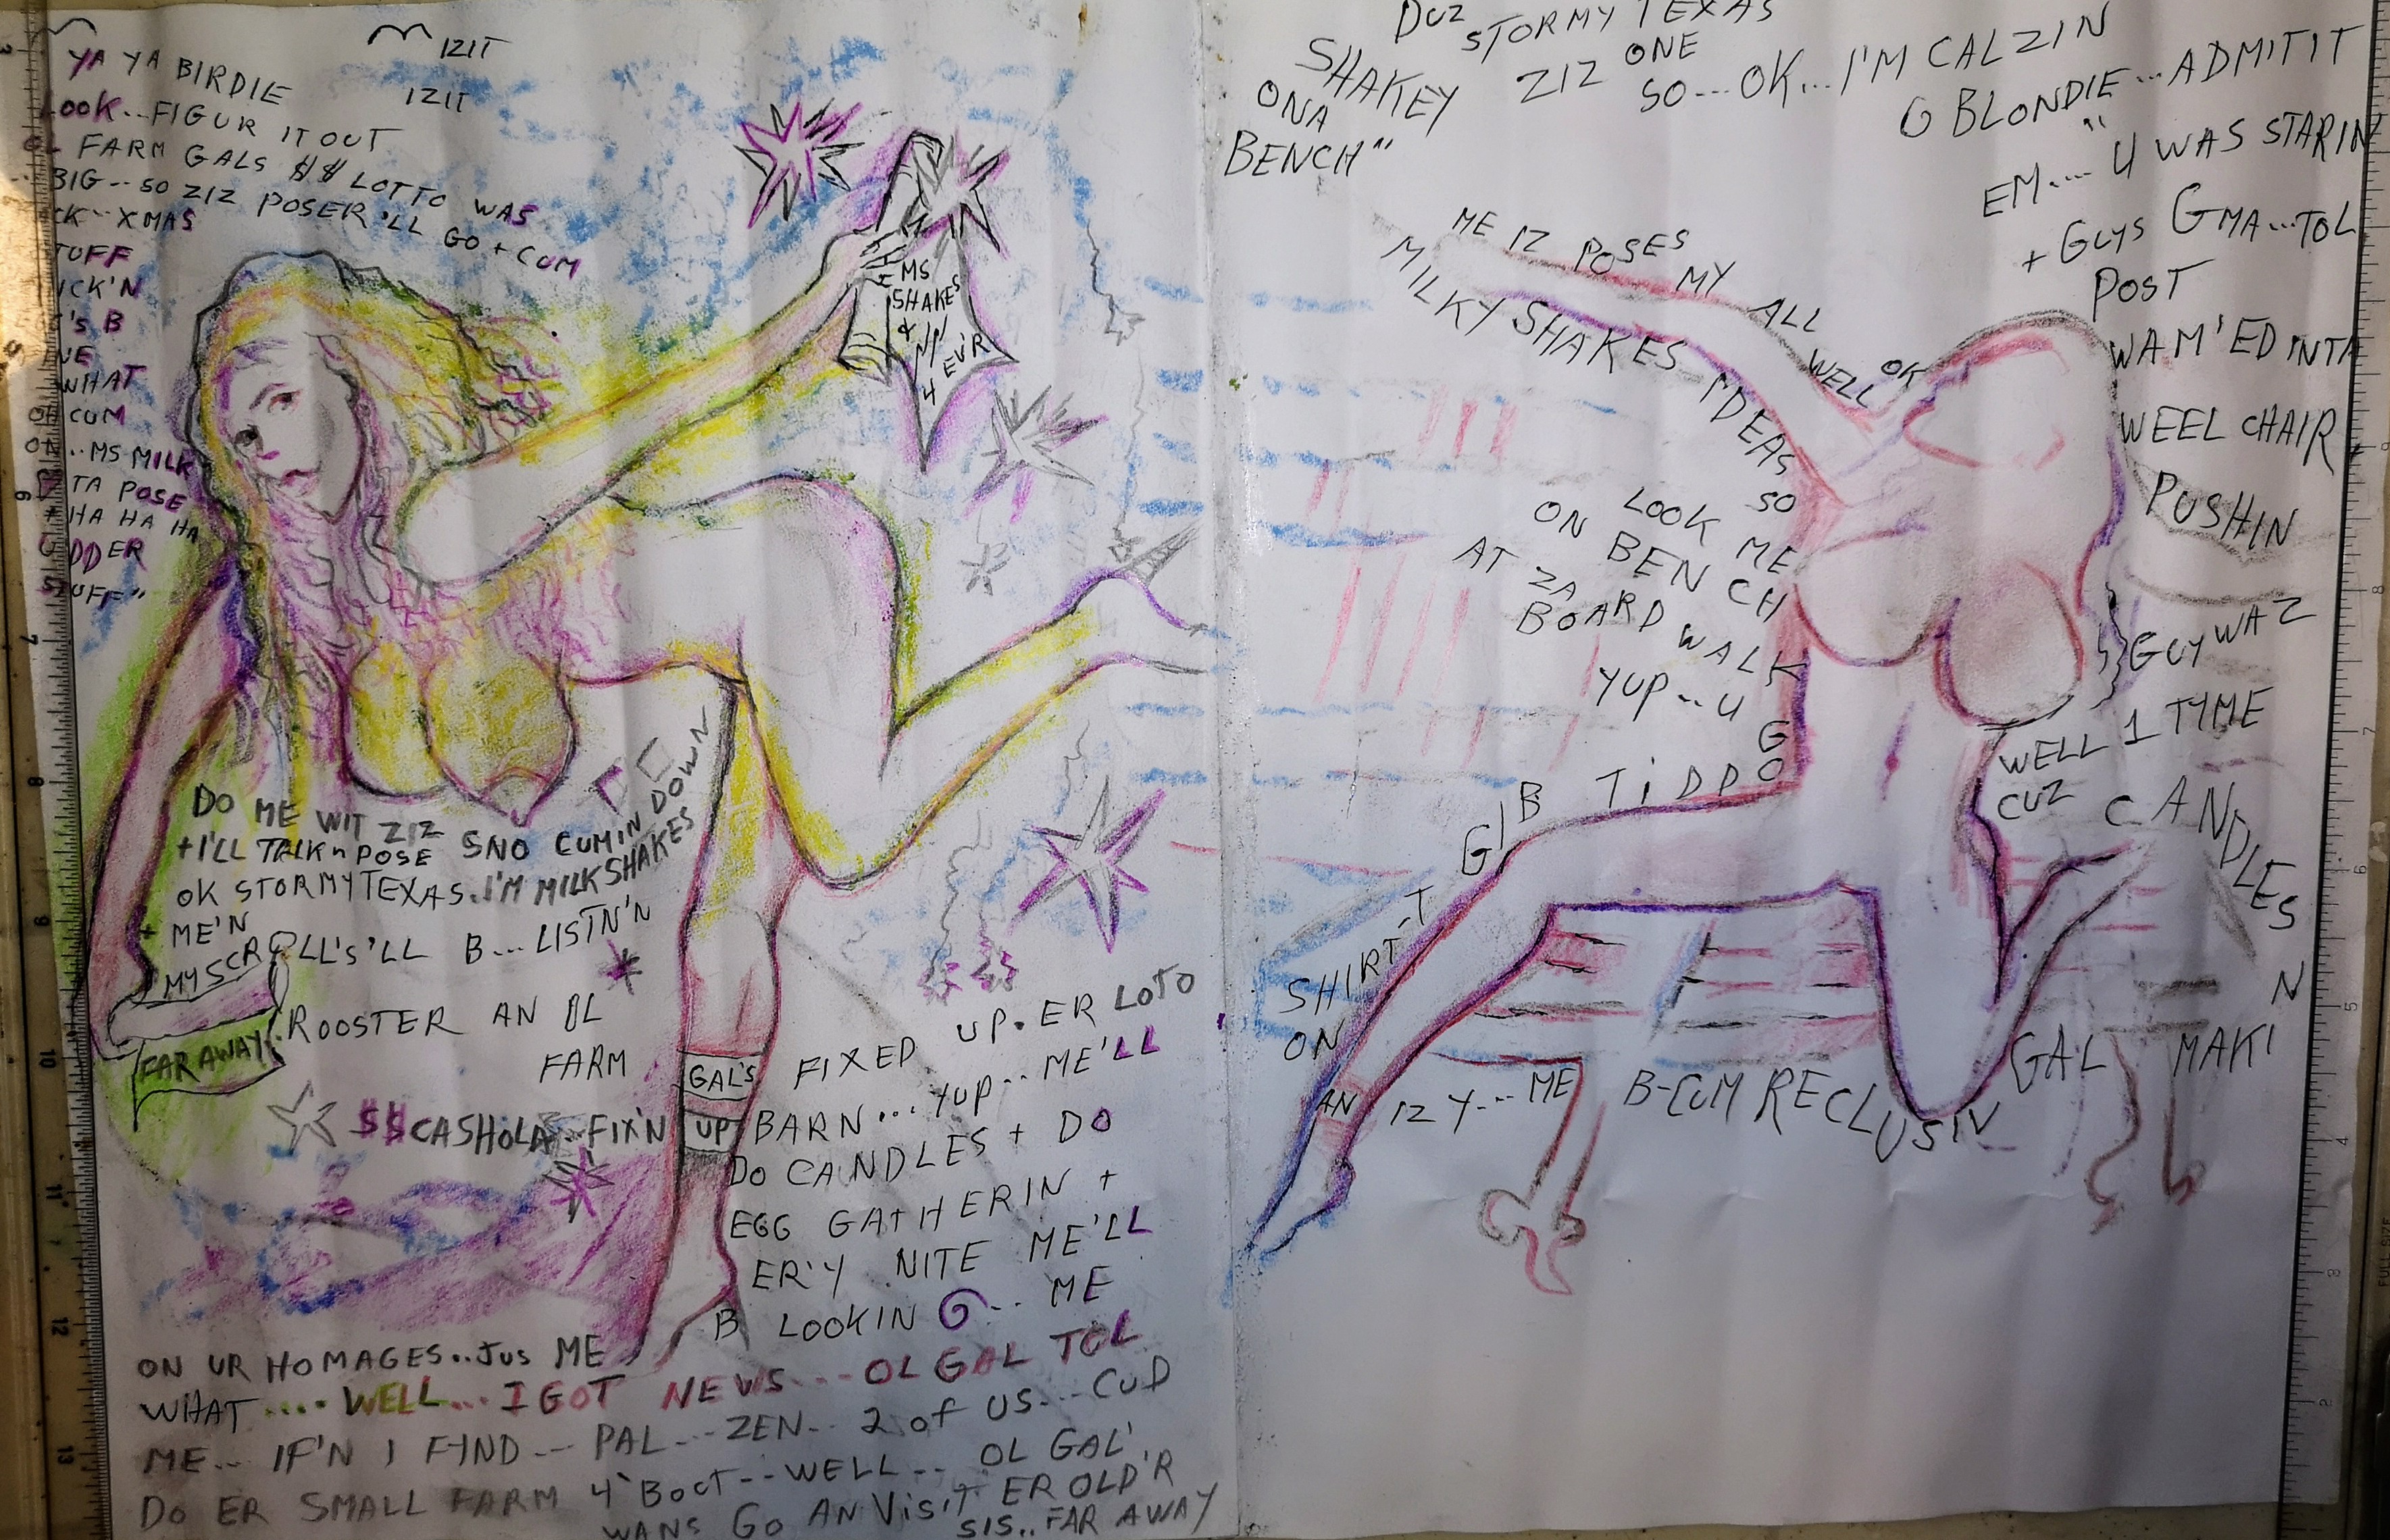 IZIT
IZIT
YA YA BIRDIE
LOOK...FIGUR IT OUT
FARM GALS $$ LOTTO WAS
BIG--SO ZIZ POSER'LL GO + CUM
CK--XMAS
TUFF
ICK'N
'S B
NE
WHAT
OH CUM
ON...MS MILK
TA POSE
+HA HA HA
UDDER
STUFF"
MS
SHAKES
& IN
4 EV'R
DO ME WIT ZIZ SNO CUMIN DOWN
+I'LL TALK n POSE
OK STORMY TEXAS. I'M MILKSHAKES
+ ME'N
MY SCROLL'S'LL B... LISTN'N
FAR AWAY!.. ROOSTER AN OL
FARM
$$CASHOLA--FIX'N UP
GAL'S
FIXED UP. ER LOTO
BARN...YUP...ME'LL
DO CANDLES + DO
EGG GATHERIN +
ER'Y NITE ME'LL
B LOOKIN G... ME
ON UR HOMAGES..JUS ME
WHAT .... WELL... I GOT NEWS... OL GAL TOL
ME... IF'N I FYND... PAL... ZEN.. 2 of US... CUD
DO ER SMALL FARM 4'BOCT--WELL... OL GAL'
WANS GO AN VISIT ER OLD'R
SIS.. FAR AWAY
DUZ STORMY TEXAS
SHAKEY ZIZ ONE
ONA
BENCH"
SO...OK...I'M CALZIN
G BLONDIE...ADMITIT
EM...."U WAS STARIN
+ GUYS GMA...TOL
POST
WAM'ED INTA
WEEL CHAIR
PUSHIN
GUY WAZ
WELL 1 TYME
CUZ CANDLES
N
GAL MAKI
ME IZ POSES MY ALL WELL OK
MILKY SHAKES IDEAS
LOOK SO
ON BENCH ME
AT ZA
BOARD WALK
YUP...U
GO
GIB TiDDO
SHIRT-T
ON
AN IZ Y--- ME B-CUM RECLUSIV